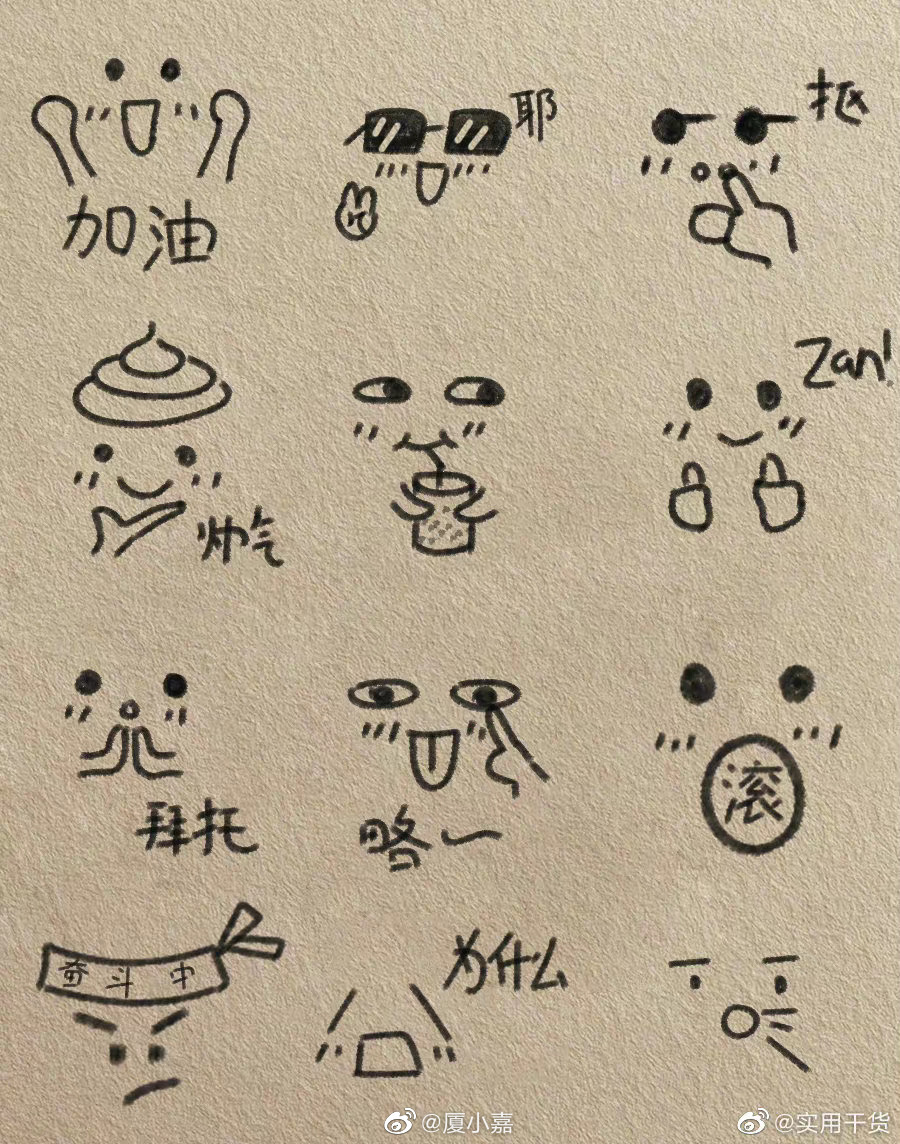 加油
耶
抠
Zan!
帅气
拜托
略～
滚
奋斗中
为什么
@厦小嘉
@实用干货